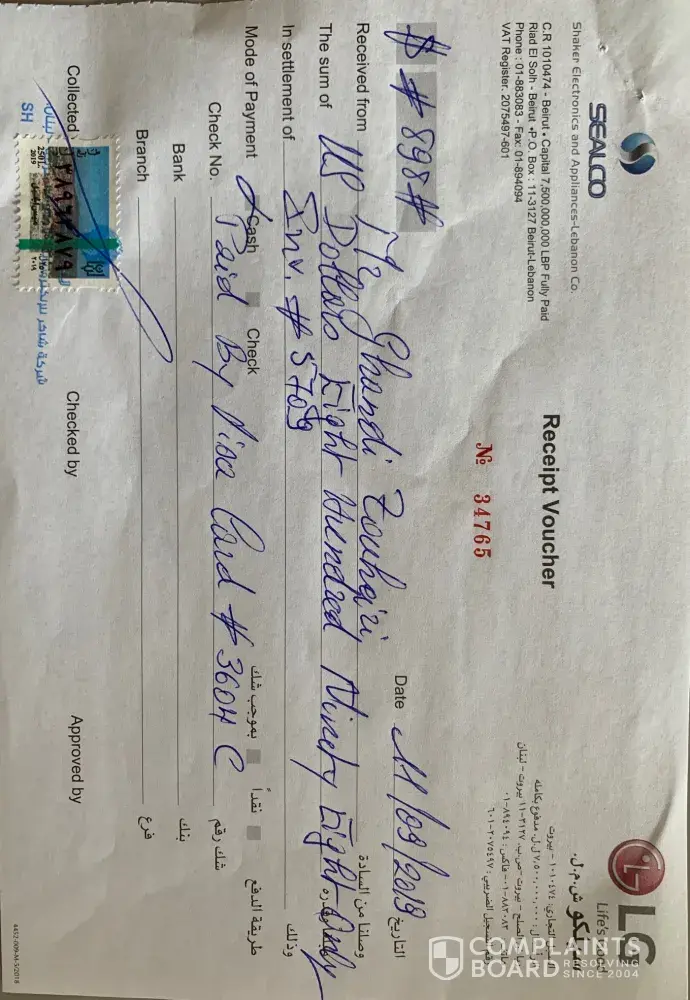 SEALCO
Shaker Electronics and Appliances-Lebanon Co.
C.R 1010474 - Beirut • Capital 7,500,000,000 LBP Fully Paid
Riad El Solh - Beirut •P.O. Box : 11-3127 Beirut-Lebanon
Phone : 01-883083 - Fax: 01-894094
VAT Register. 2075497-601
LG
Life's
ش.م.ل.
Receipt Voucher
Nº 34765
$ # 898 #
Date 11/09/2019 التاريخ
Received from Mr Ghandi وصلنا من السادة
The sum of US Dollars Eight Hundred Ninety Eight Only
In settlement of Inv. # 5709 وذلك
Mode of Payment Cash Check بموجب شك نقداً طريقة الدفع
Check No. Paid By Visa Card # 3604 C شك رقم
Bank بنك
Branch فرع
Collected Checked by Approved by
لبنان
250L.L
2019
٢٠١٨
SH
شركة شاكر
4432-009-M-5/2018
COMPLAINTS
BOARD RESOLVING SINCE 2004